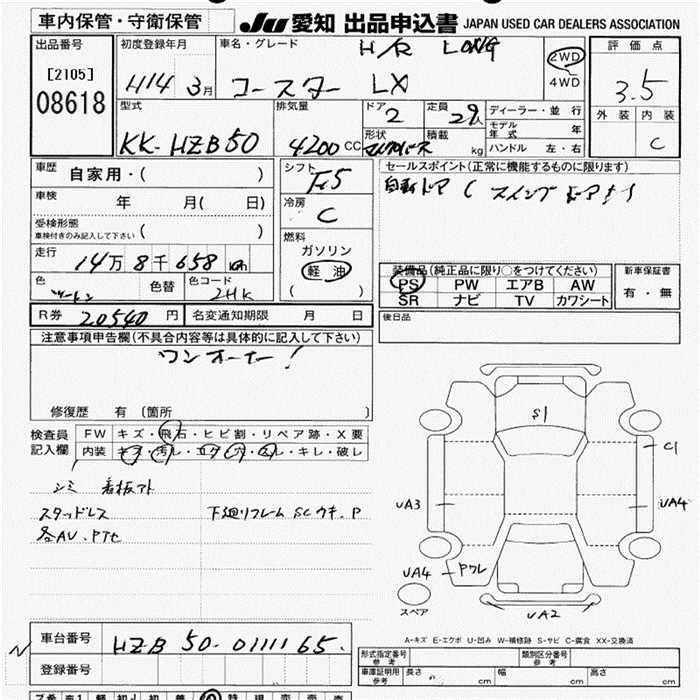 車内保管・守衛保管
JU 愛知 出品申込書 JAPAN USED CAR DEALERS ASSOCIATION
出品番号
[2105]
08618
初度登録年月
H14 3月
車名・グレード
H/R LONG
コースター LX
2WD
4WD
評価点
3.5
外装 内装
C
型式
KK-HZB50
排気量
4200 CC
ドア
2
定員
29人
形状
積載
kg
ディーラー・並行
モデル年式 年
ハンドル 左・右
車歴
自家用・( )
車検
年 月( 日)
受検形態
車検付きのみ記入して下さい ( )
走行
14万8千658 km
色
ツートン
色替
色コード
2HK
シフト
F5
冷房
C
燃料
ガソリン
軽油
( )
セールスポイント(正常に機能するものに限ります)
自動ドア
装備品(純正品に限り○をつけてください)
PS PW エアB AW
SR ナビ TV カワシート
新車保証書
有・無
R券 20540 円
名変通知期限 月 日
後日品
注意事項申告欄(不具合内容等は具体的に記入して下さい)
ワンオーナー!
修復歴 有 [箇所 ]
検査員記入欄
FW キズ・飛石・ヒビ割・リペア跡・X要
内装 キズ・汚レ・コゲ・穴・スレ・キレ・破レ
シミ 看板アト
スタッドレス 下廻リフレーム SC ウキ.P
各AU.PTセ
S1
C1
UA3
UA4
UA4
Pワレ
スペア
UA2
A-キズ E-エクボ U-凹み W-補修跡 S-サビ C-腐食 XX-交換済
車台番号
HZB 50-0111165.
登録番号
形式指定番号 参考
類別区分番号 参考
車庫証明用 参考 長さ cm 幅 高さ